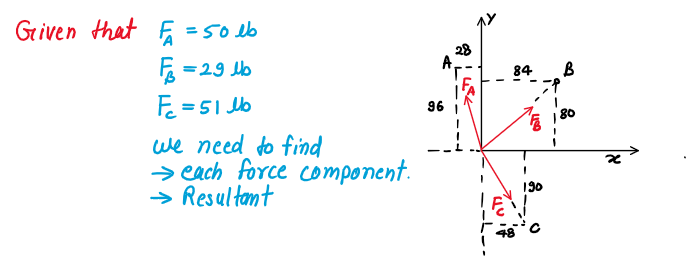 Given that F_A = 50 lb
F_B = 29 lb
F_C = 51 lb
we need to find
→ each force component.
→ Resultant
y
28
A
84
B
F_A
96
F_B
80
x
90
F_C
48
C